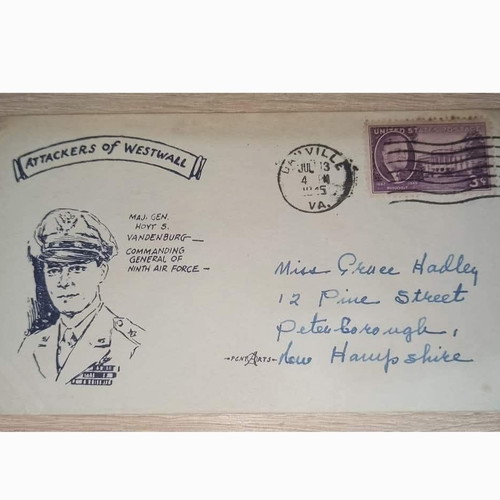 ATTACKERS OF WESTWALL
MAJ. GEN.
HOYT S.
VANDENBURG
COMMANDING
GENERAL OF
NINTH AIR FORCE
DANVILLE
JUL 13
4 PM
1945
VA.
UNITED STATES POSTAGE
3¢
Miss Grace Hadley
12 Pine Street
Peterborough,
New Hampshire
PENT ARTS